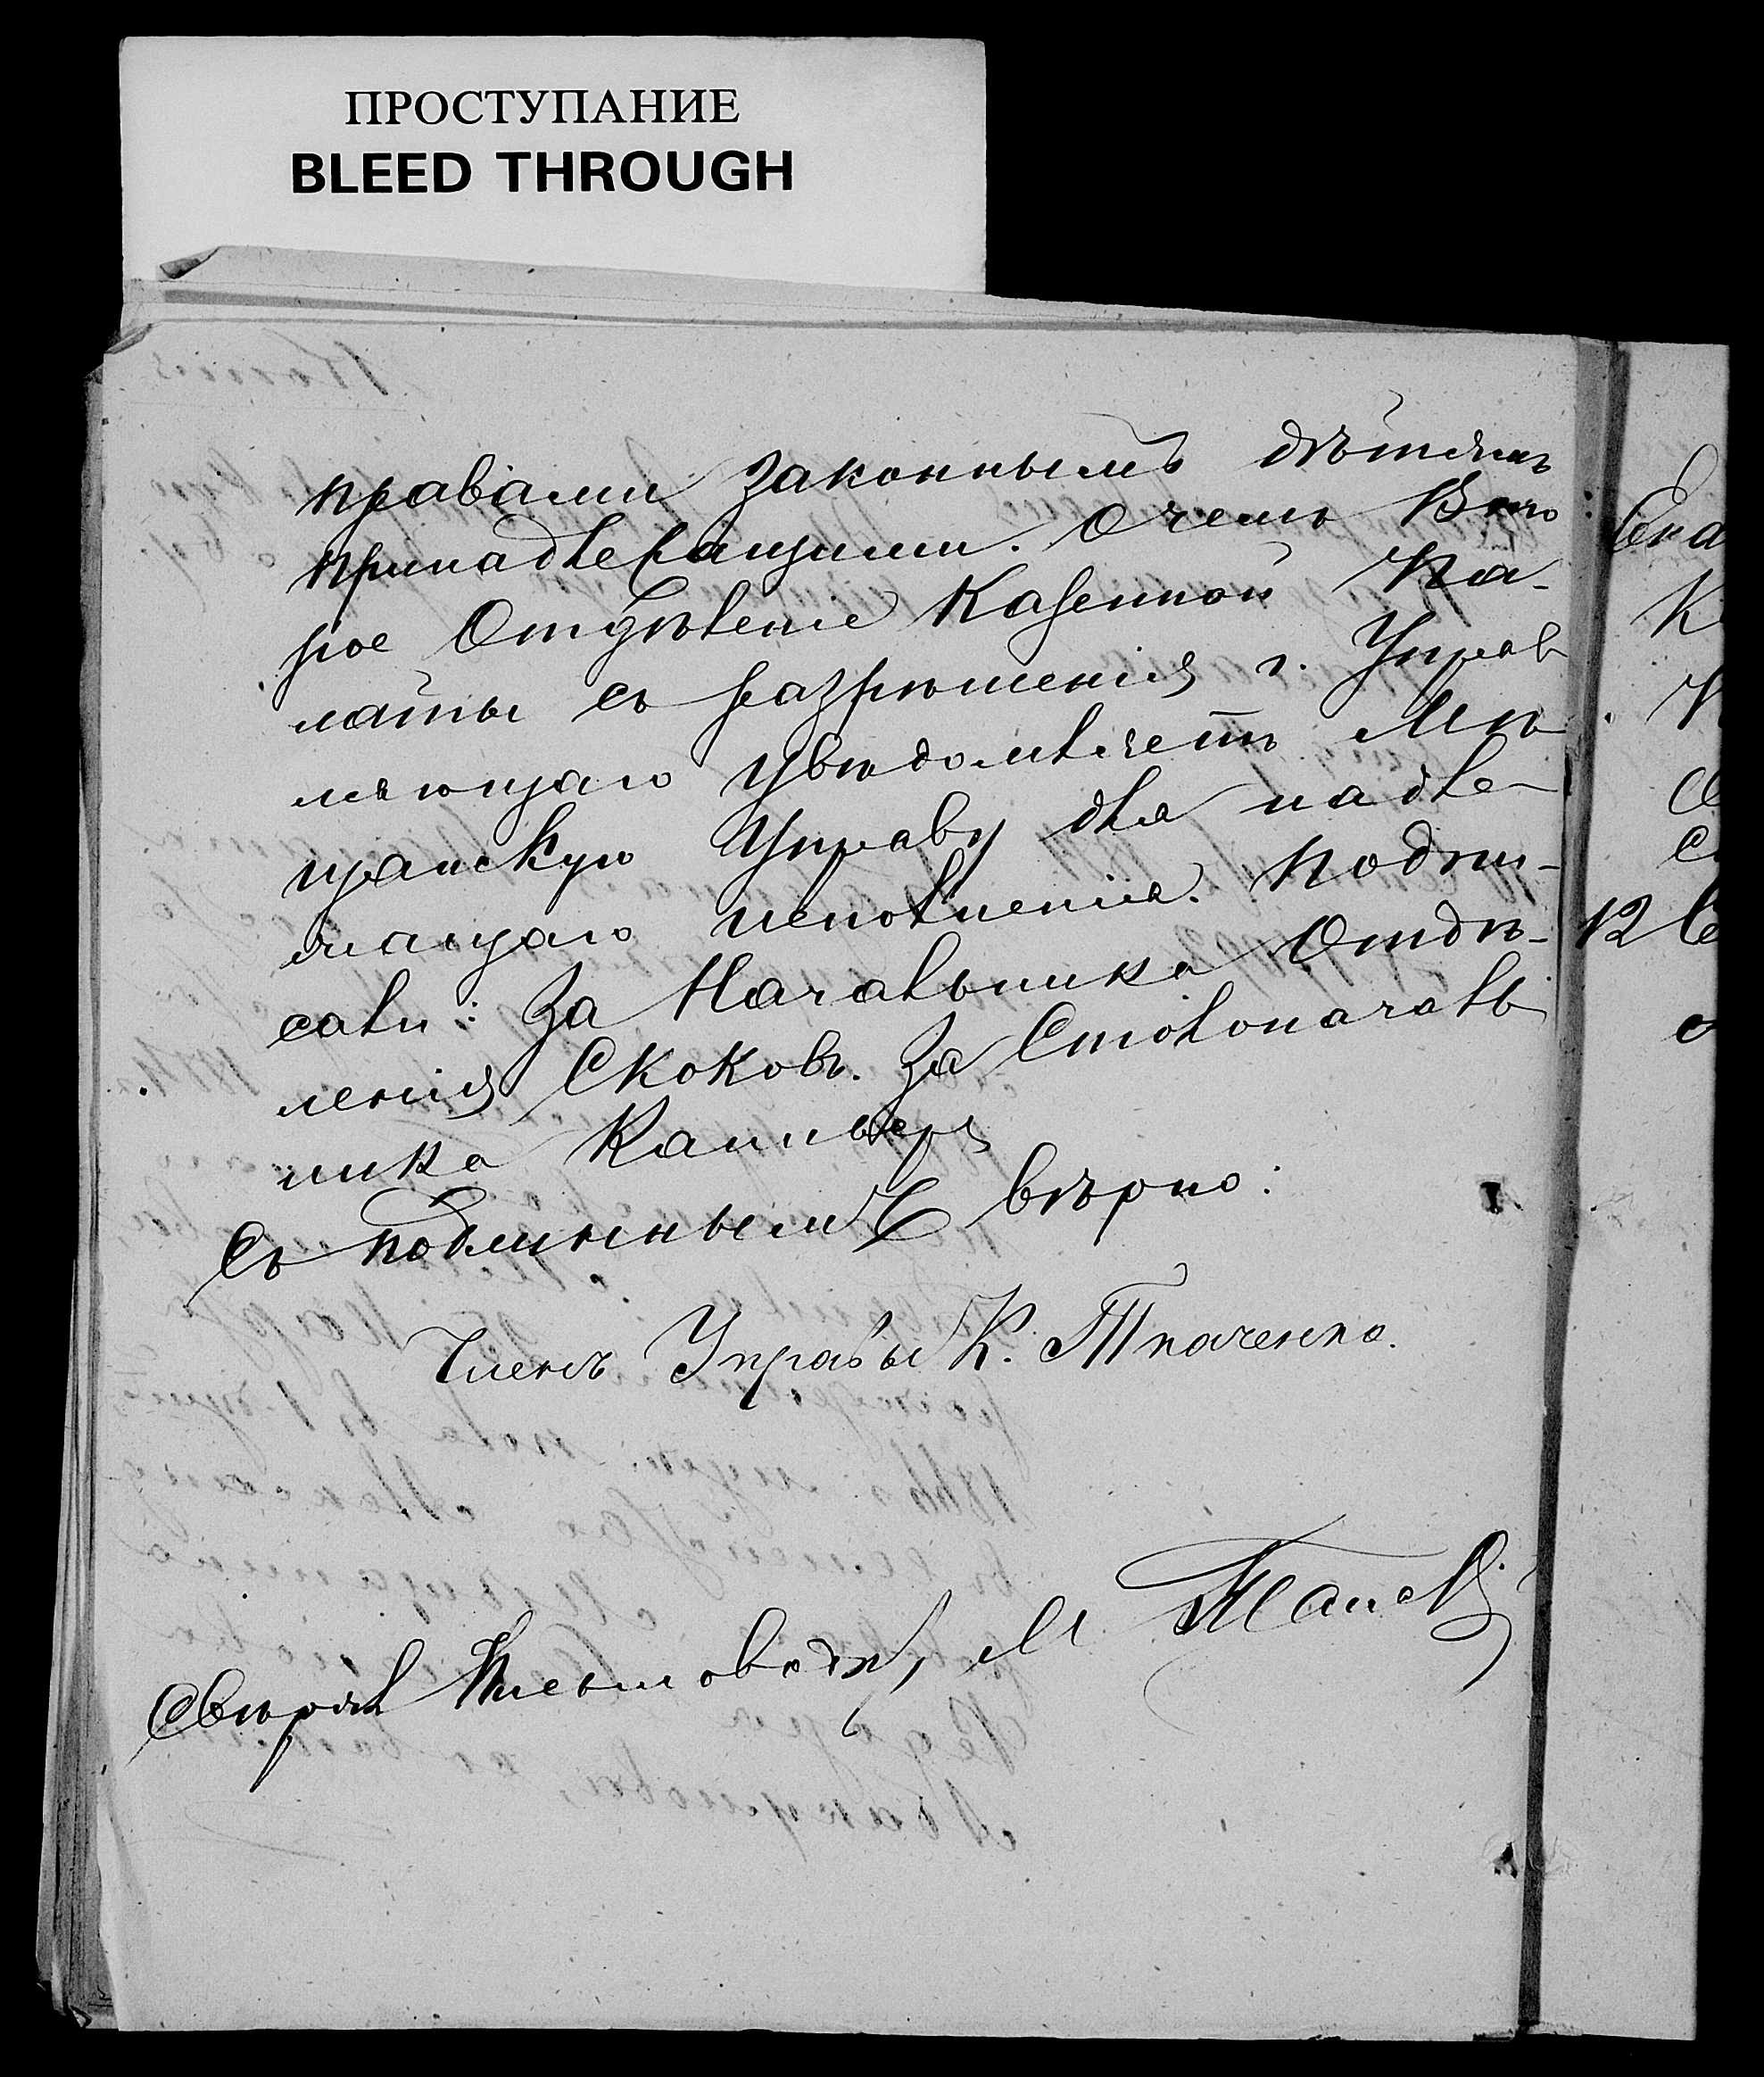 ПРОСТУПАНИЕ
BLEED THROUGH
правами законнымъ дѣтямъ
принадлежащими. О чемъ Вто
рое Отдѣленіе Казенной Па-
латы съ разрѣшенія г. Управ
ляющаго увѣдомляетъ Мѣ
щанскую Управу для надле-
жащаго исполненія. Подпи-
сали: За Начальника Отдѣ-
ленія Скоковъ. За Столоначаль
ника
Съ подлиннымъ вѣрно:
Членъ Управы К. Ткаченко.
Свѣрялъ Письмоводит, М